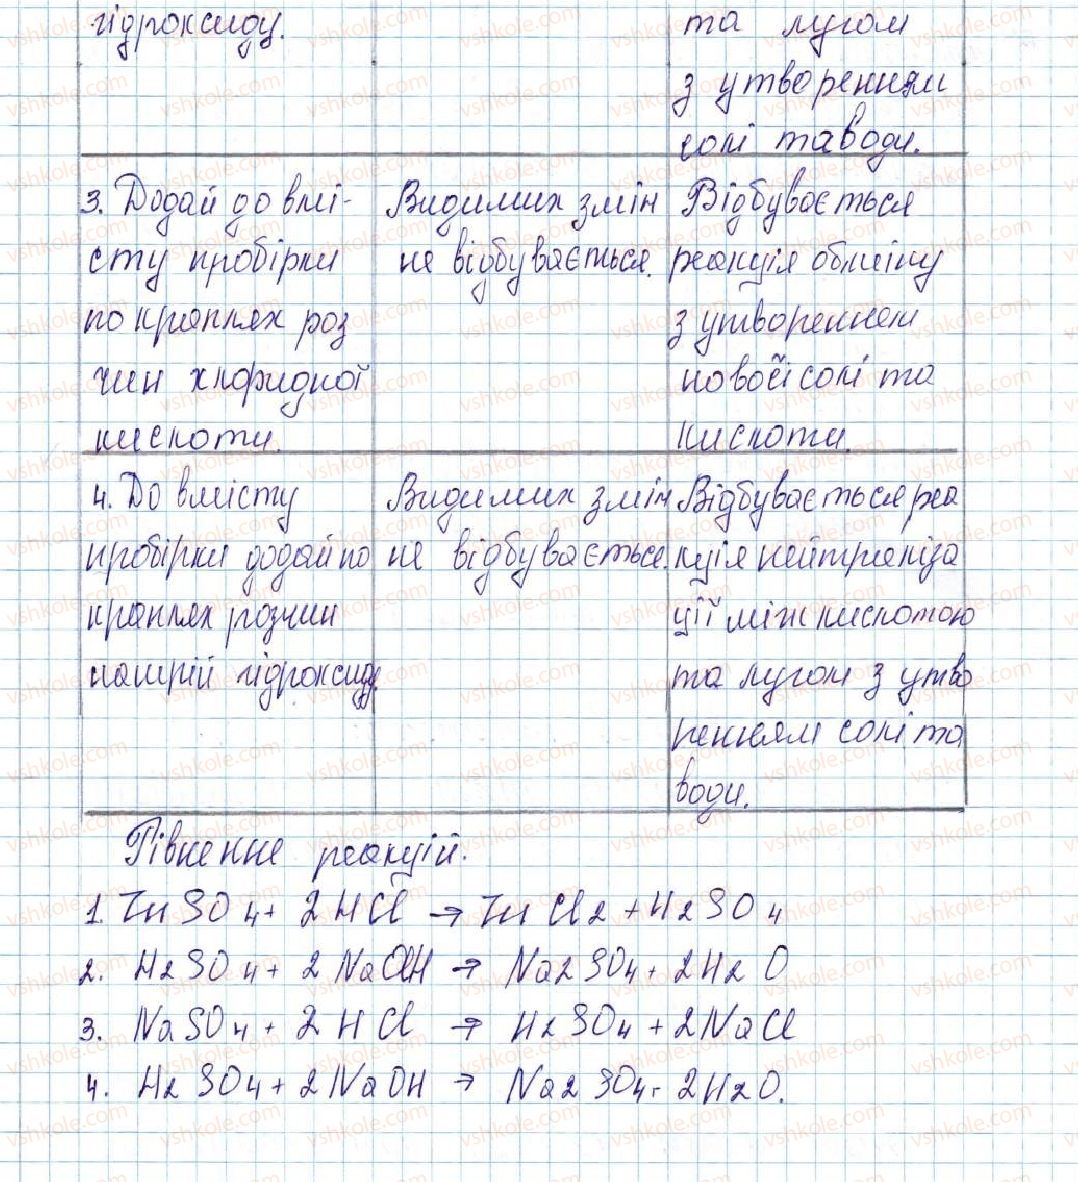 гідроксиду.
та лугом
з утворенням
солі та води.
3. Додай до вмі-
сту пробірки
по краплях роз
чин хлоридної
кислоти.
Видимих змін
не відбувається.
Відбувається
реакція обміну
з утворенням
нової солі та
кислоти.
4. До вмісту
пробірки додай по
краплях розчин
натрій гідроксиду.
Видимих змін
не відбувається.
Відбувається реа
кція нейтраліза
ції між кислотою
та лугом з утво
ренням солі та
води.
Рівняння реакцій.
1. ZnSO4 + 2HCl → ZnCl2 + H2SO4
2. H2SO4 + 2NaOH → Na2SO4 + 2H2O
3. NaSO4 + 2HCl → H2SO4 + 2NaCl
4. H2SO4 + 2NaOH → Na2SO4 + 2H2O.